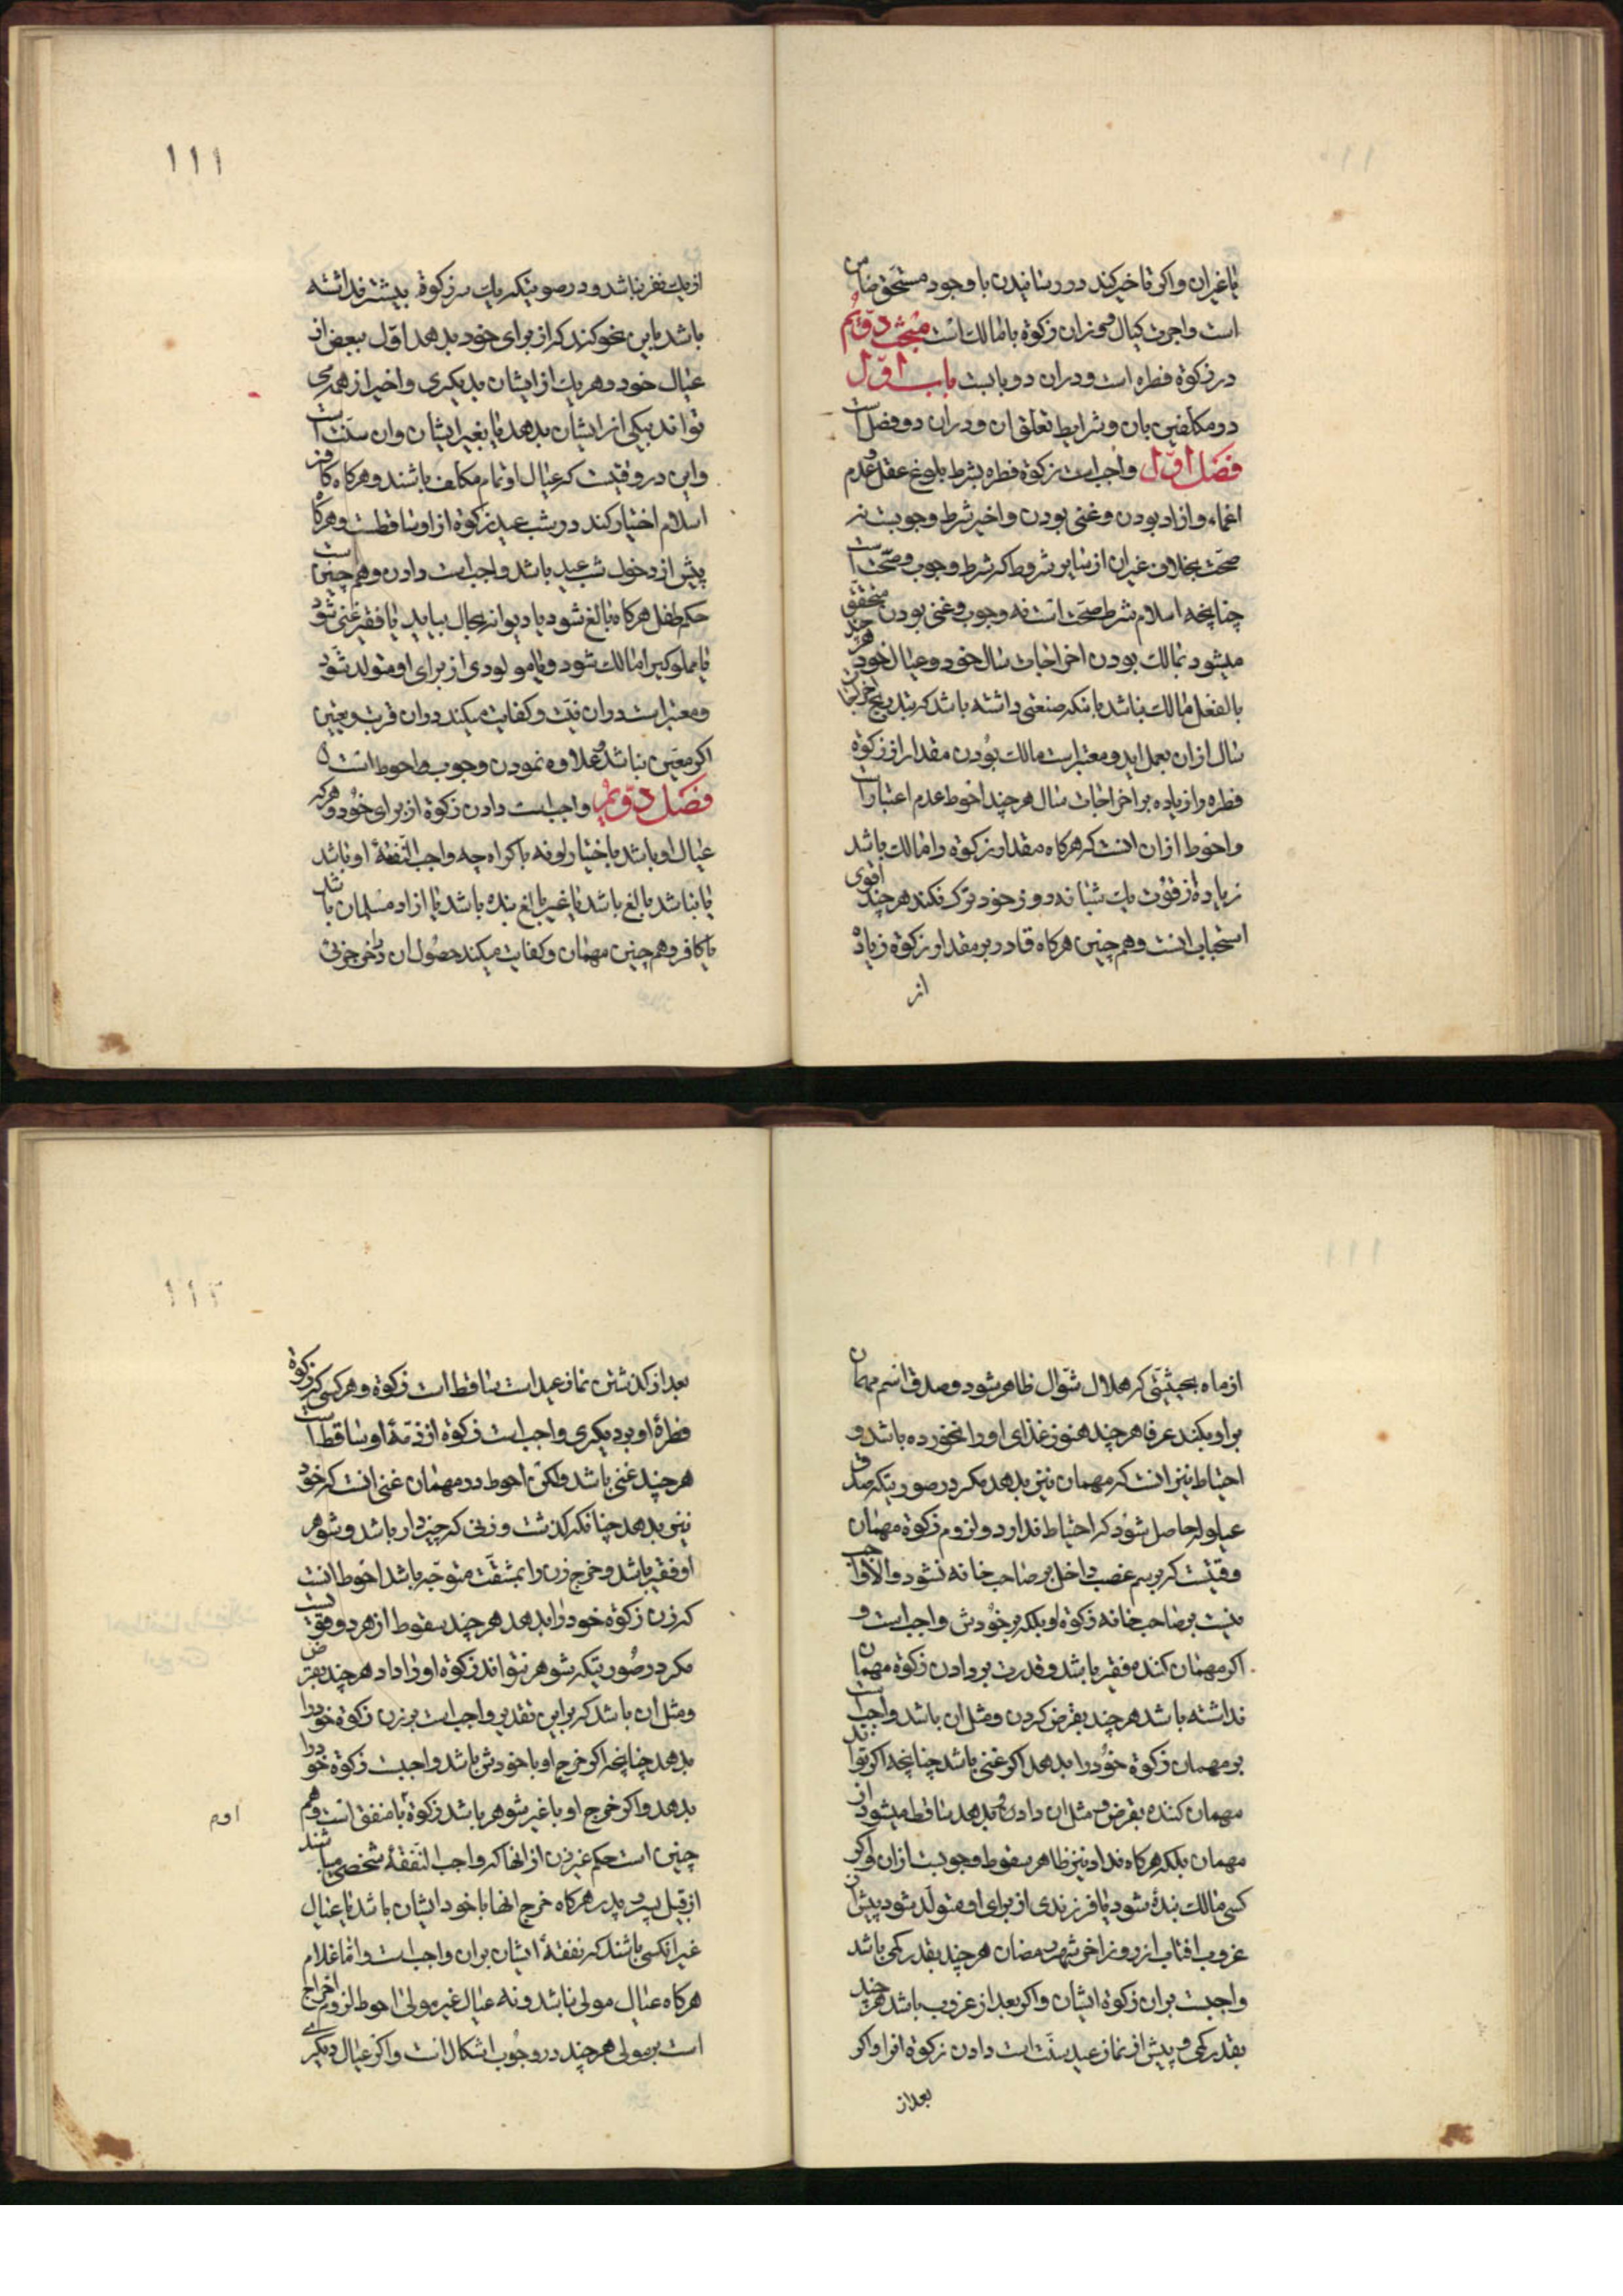 یا غیر ان واکر تاخیر کند در رسانیدن با وجود مستحق ضامن
است واجرت کیال و وزان زکوة با مالک است مبحث دویم
در زکوة فطره است ودران دو بابست باب اول
در مکلفین بان وشرایط تعلق ان ودران دو فصل است
فصل اول واجب است زکوة فطره بشرط بلوغ عقل و عدم
اغماء وازاد بودن وغنی بودن واخیر شرط وجوبست نه
صحت بخلاف غیر ان از سایر شروط که شرط وجوب وصحت است
چنانچه اسلام شرط صحت است نه وجوب وغنی بودن متحقق
میشود بمالک بودن اخراجات سال خود وعیال خود هر چند
بالفعل مالک نباشد بانکه صنعتی داشته باشد که بتدریج اخراجات
سال ازان بعمل اید ومعتبر است مالک بودن مقدار از زکوة
فطره را زیاده بر اخراجات سال هر چند احوط عدم اعتبار است
واحوط ازان انست که هرکاه مقدار زکوة را مالک باشد
زیاده از قوت یک شبانه روز خود ترک نکند هر چند اقوی
استحباب انست وهم چنین هرکاه قادر بر مقدار زکوة زیاده
از
١١١
از یک نفر نباشد ودر صورتیکه یک سر زکوة بیشتر نداشته
باشد باین نحو کند که از برای خود بدهد اول ببعض از
عیال خود وهر یک از ایشان بدیکری واخر از همه می
تواند بیکی از ایشان بدهد یا بغیر ایشان وان سنت است
واین در وقتیست که عیال او تمام مکلف باشند وهرکاه کافر
اسلام اختیار کند در شب عید زکوة از او ساقطست وهرکاه
پیش از دخول شب عید باشد واجب است دادن وهم چنین است
حکم طفل هرکاه بالغ شود یا دیوانه بحال بیاید یا فقیر غنی شود
یا مملوکی را مالک شود ویا مولودی از برای او متولد شود
ومعتبر است دران نیت وکفایت میکند دران قربت وتعیین
اکر معین نباشد وعلاوه نمودن وجوب احوط است
فصل دویم واجب است دادن زکوة از برای خود وهر که
عیال او باشد باختیار او نه باکراه چه واجب النفقهٔ او باشد
یا نباشد بالغ باشد یا غیر بالغ بنده باشد یا ازاد مسلمان باشد
یا کافر وهم چنین مهمان وکفایت میکند حصول ان در اخر جزئی
از ماه بحیثیتی که هلال شوال ظاهر شود وصدق اسم مهمان
بر او بکند عرفا هر چند هنوز غذای او را نخورده باشد و
احتیاط نیز انست که مهمان نیز بدهد مکر در صورتیکه صدق
عیلوله حاصل شود که احتیاط ندارد ولزوم زکوة مهمان
وقتیست که برسم غصب داخل بر صاحب خانه نشود والا واجب
نیست بر صاحب خانه زکوة او بلکه بر خودش واجب است و
اکر مهمان کننده فقیر باشد وقدرت بر دادن زکوة مهمان
نداشته باشد هر چند بقرض کردن ومثل ان باشد واجب است
بر مهمان زکوة خود را بدهد اکر غنی باشد چنانچه اکر تواند
مهمان کننده بقرض ومثل ان دادن وبدهد ساقط میشود از
مهمان بلکه هرکاه نداد نیز ظاهر سقوط وجوبست ازان واکر
کسی مالک بندهٔ شود یا فرزندی از برای او متولد شود پیش از
غروب افتاب از روز اخر شهر رمضان هر چند بقدر کمی باشد
واجبست بران زکوة ایشان واکر بعد از غروب باشد هر چند
بقدر کمی وپیش از نماز عید سنت است دادن زکوة انرا واکر
بعد از
١١٢
بعد از کذشتن نماز عید است ساقط است زکوة وهر کسی که زکوة
فطرهٔ او بر دیکری واجب است زکوة از ذمهٔ او ساقط است
هر چند غنی باشد ولکن احوط در مهمان غنی انست که خود
نیز بدهد چنانکه کذشت وزنی که چیزدار باشد وشوهر
او فقیر باشد وخرج زن را بمشقت متوجه باشد احوط انست
که زن زکوة خود را بدهد هر چند سقوط از هر دو است
مکر در صورتیکه شوهر نتواند زکوة او را داد هر چند بقرض
ومثل ان باشد که بر این تقدیر واجب است بر زن زکوة خود را
بدهد چنانچه اکر خرج او با خودش باشد واجبست زکوة خود را
بدهد واکر خرج او با غیر شوهر باشد زکوة با منفق است وهم
چنین است حکم غیر زن از انها که واجب النفقهٔ شخصی میباشند
از قبیل پسر وپدر هرکاه خرج انها با خود ایشان باشد یا عیال
غیر انکسی باشند که نفقهٔ ایشان بران واجب است واما غلام
هرکاه عیال مولی نباشد ونه عیال غیر مولی احوط لزوم اخراج
است بر مولی هر چند در وجوب اشکال است واکر عیال دیکری